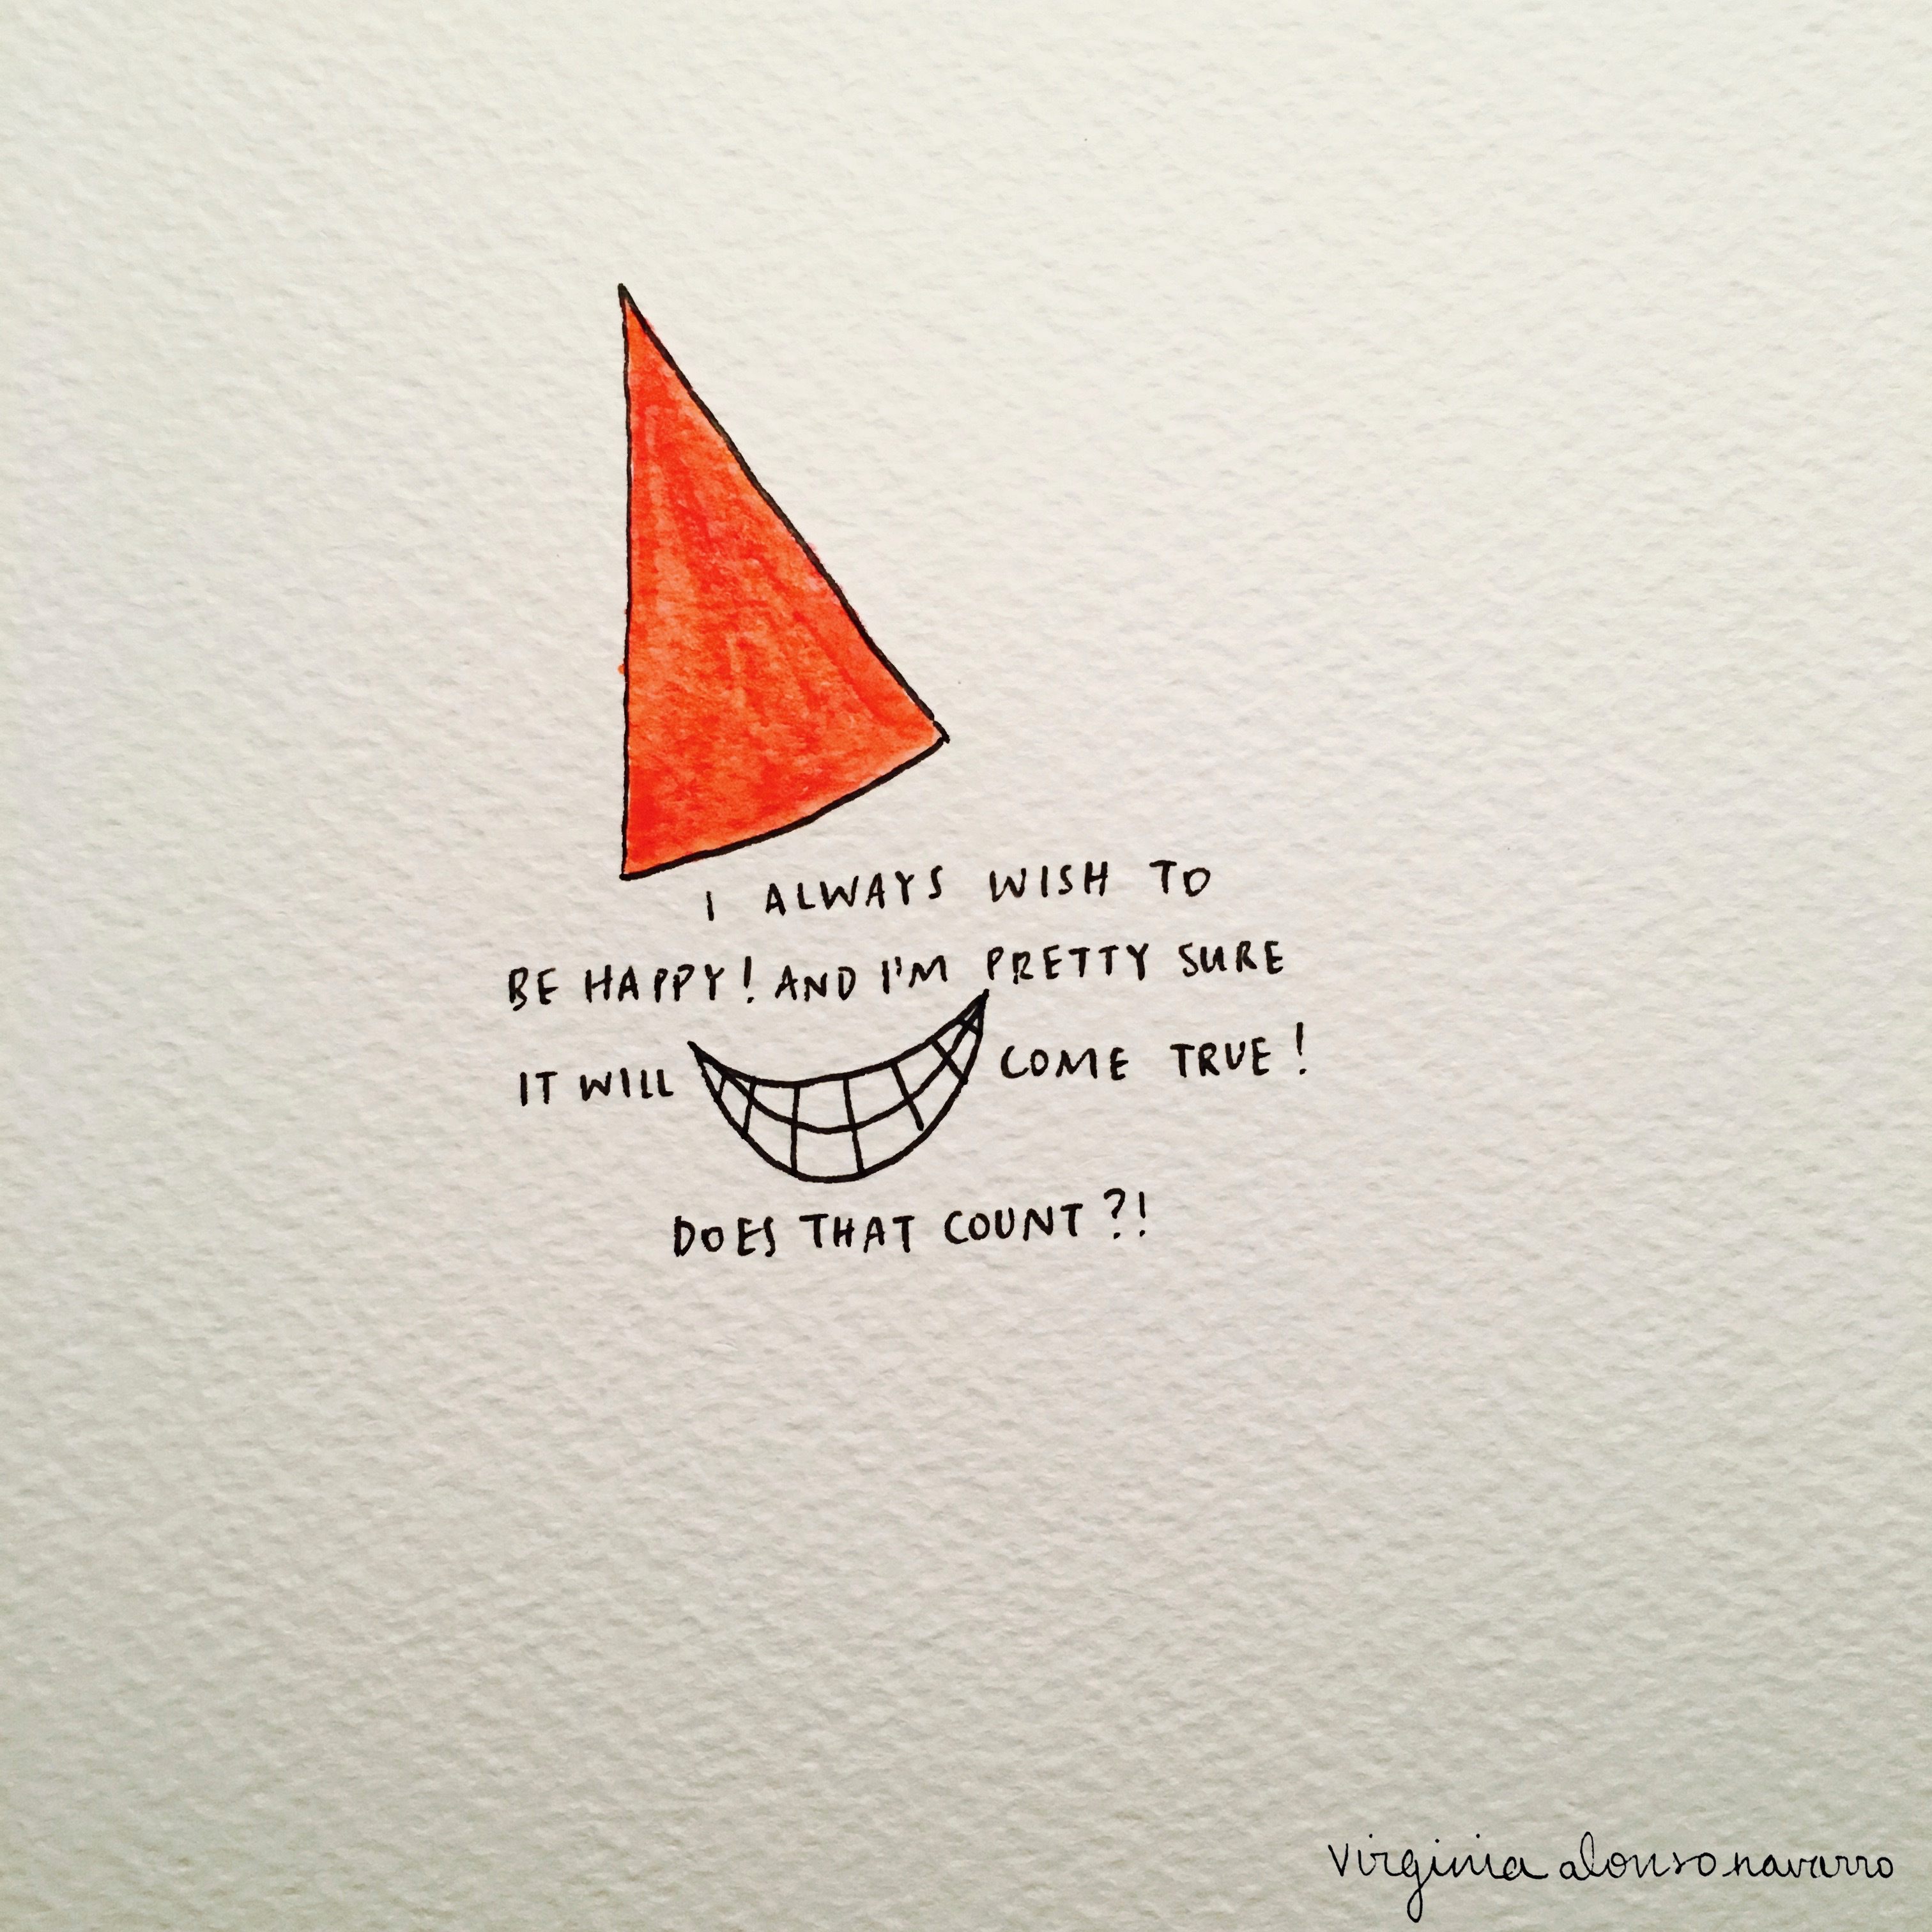 I ALWAYS WISH TO
BE HAPPY! AND I'M PRETTY SURE
IT WILL COME TRUE!
DOES THAT COUNT?!
virginia alonso navarro